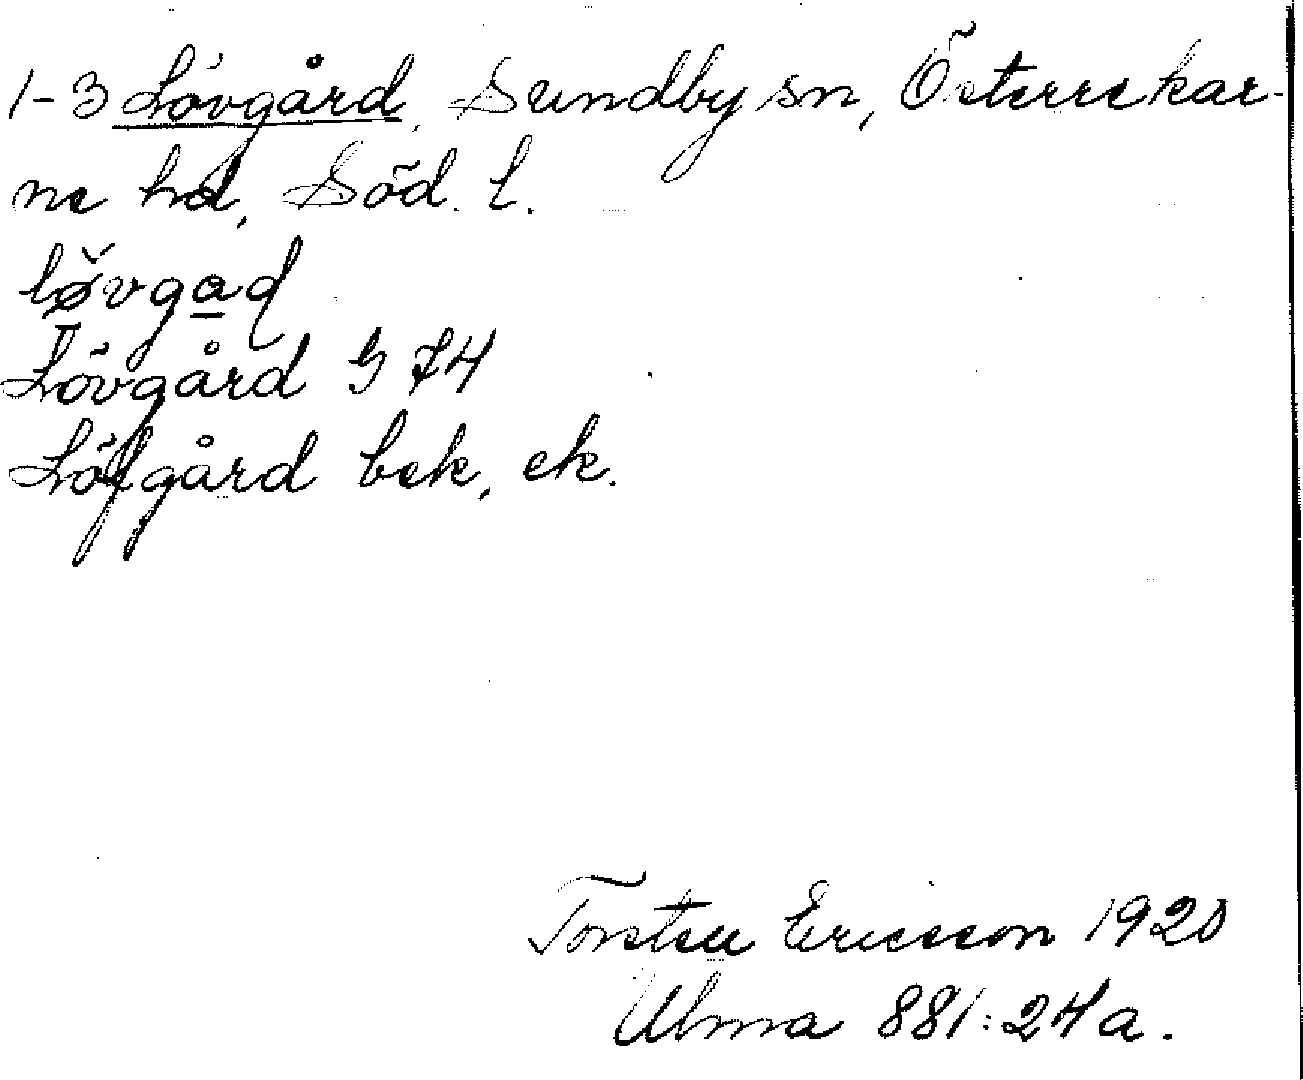 1-3 Lövgård, Sundby sn, Österrekar-
ne hd, Söd. l.
Lövgård G 74
Löfgård bek, ek.
Torsten Ericsson 1920
Ulma 881:24a.